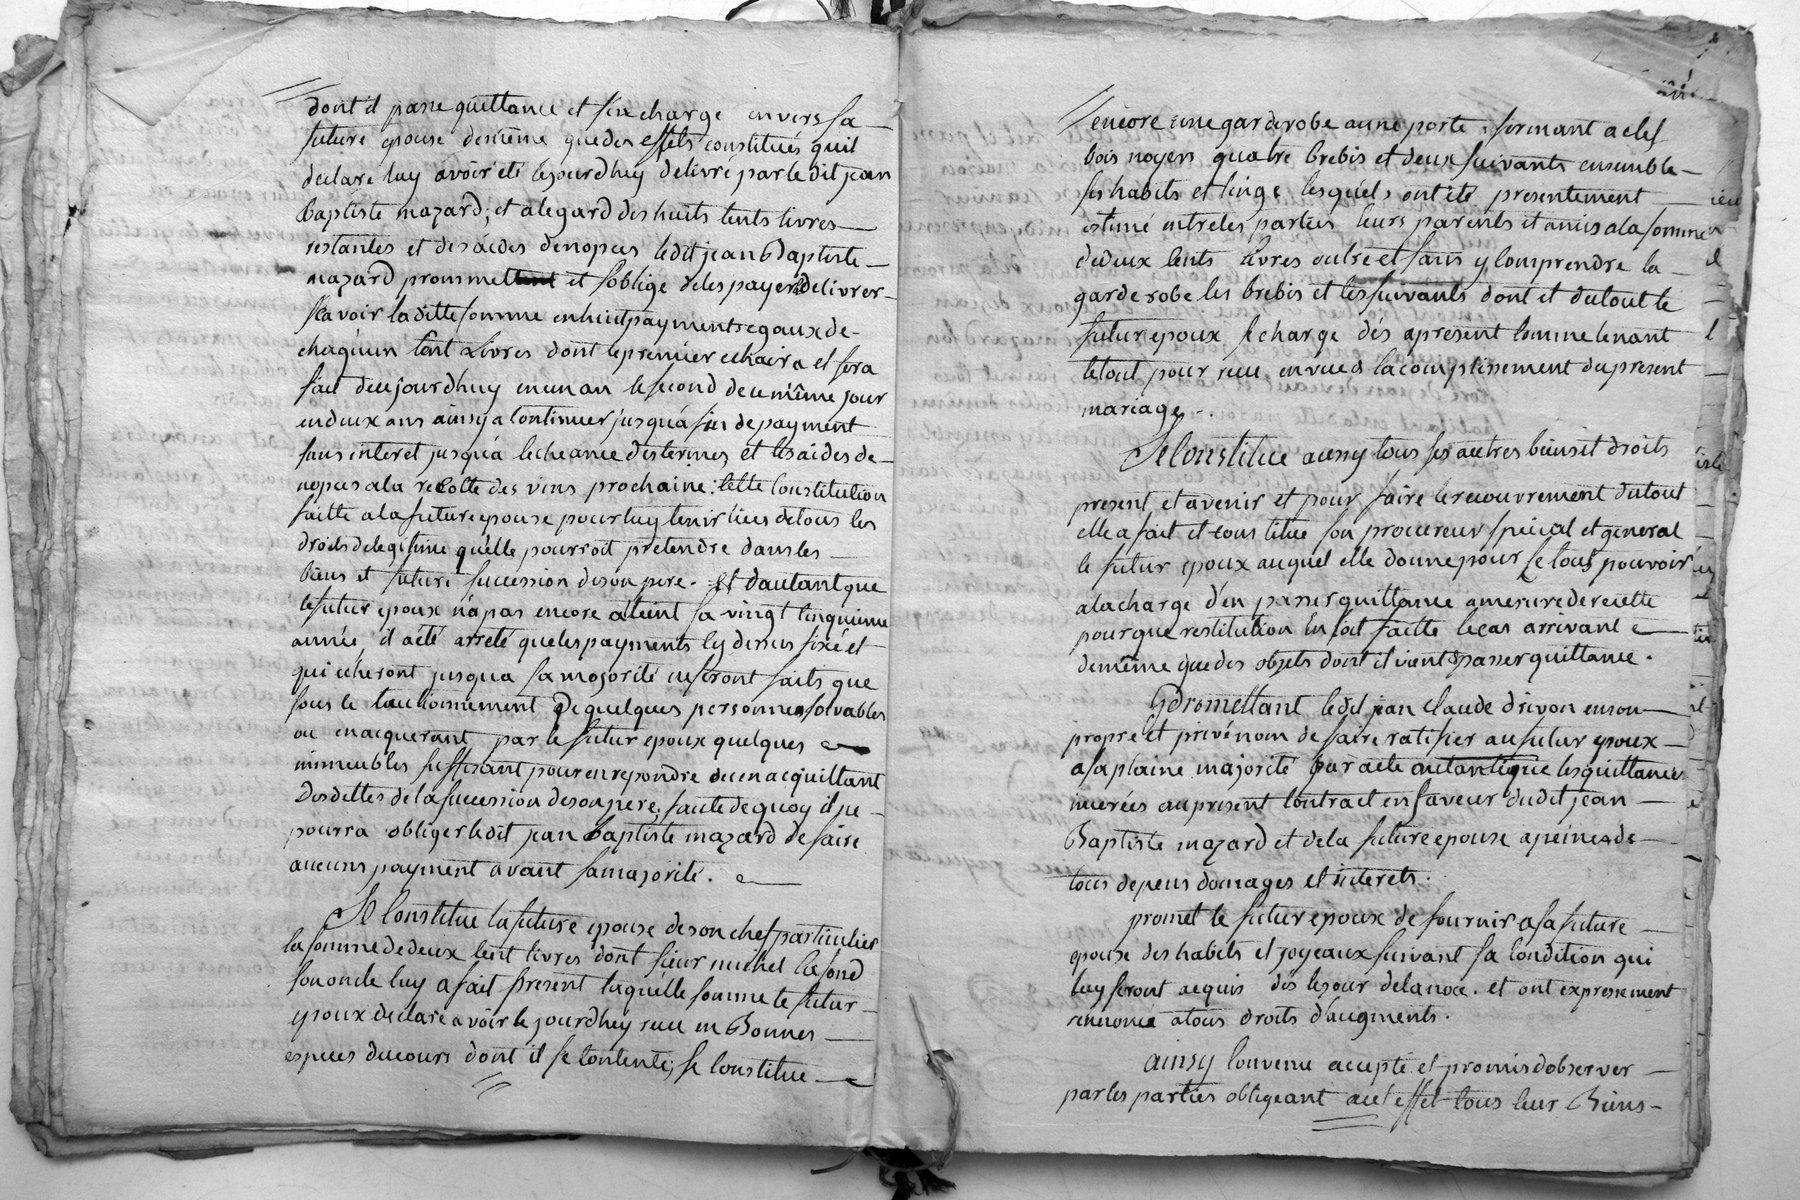 dont il passe quittance et s'en charge envers sa
future epouse demême que des effets constitués quil
declare luy avoir été cejourdhuy delivré par le dit jean
baptiste mazard; et alegard des huits cents livres
restantes et des aides denopces ledit jean Baptiste
mazard prommet et soblige deles payer & delivrer
scavoir laditte somme en huit payments egaux de
chaqu'un cent Livres dont le premier echaira et sera
fait decejourdhuy en un an le second de ce même jour
en deux ans ainsy a continuer jusqu'a fin de payment
sans interet jusqu'a lecheance des termes et les aides de
nopces ala recolte des vins prochaine: Cette Constitution
faitte ala future epouse pour luy tenir lieu detous les
droits delegitime qu'elle pourroit pretendre dans les
biens et future succession deson pere. et d'autant que
le futur epoux n'a pas encore atteint sa vingt Cinquieme
année, il a été arreté que les payments cy dessus fixé et
qui echeront jusqua sa majorité ne seront faits que
sous le Cautionnement De quelques personnes solvables
ou en acquerant par le futur epoux quelques
immeubles suffisant pour en repondre ou en acquittant
Des dettes de la succession deson pere, faute de quoy il ne
pourra obliger ledit jean Baptiste mazard de faire
aucuns payment avant sa majorité.
Se Constitue la future epouse de son chef particulier
la somme de deux Cent livres dont sieur michel lafond
son oncle luy a fait present laquelle somme le futur
epoux declare avoir cejourdhuy recu en Bonnes
especes ducours dont il se contente; se Constitue
encore une garderobe a une porte fermant a clef
bois noyers quatre brebis et deux suivants ensemble
ses habits et linge lesquels ont été presentement
estimé entre les parties leurs parents et amis ala somme
de deux Cents Livres outre et sans y Comprendre la
garderobe les brebis et les suivants dont et du tout le
futur epoux se charge dés apresent Comme tenant
le tout pour recu en vue de laccomplissement du present
mariage.
Se Constitue aussy tous ses autres biens et droits
present et avenir et pour faire le recouvrement du tout
elle a fait et constitue son procureur special et general
le futur epoux auquel elle donne pour ce tous pouvoir
ala charge d'en passer quittance a mesure de recette
pour que restitution en soit faitte le cas arrivant
de même que des objets dont il vient de passer quittance.
Promettant ledit jean Claude drivon en son
propre et privé nom de faire ratifier au futur epoux
a sa plaine majorité par acte autantique les quittances
inserées au present Contract en faveur dudit jean
Baptiste mazard et de la future epouse a peine de
tous depens domages et interets.
promet le futur epoux de fournir a sa future
epouse des habits et joyeaux suivant sa Condition qui
luy seront acquis dés le jour de la noce. et ont expressement
renoncé a tous droits d'augments.
Ainsy Convenu accepté et promis dobserver
par les parties obligeant a cet effet tous leur Biens